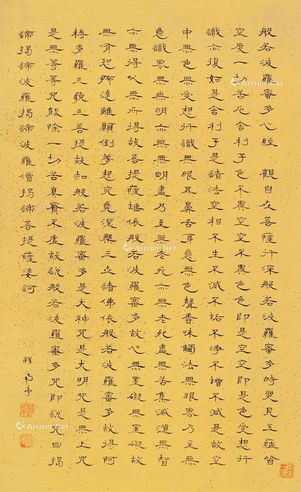 般若波羅蜜多心經 觀自在菩薩行深般若波羅蜜多時照見五蘊皆
空度一切苦厄舍利子色不異空空不異色色即是空空即是色受想行
識亦復如是舍利子是諸法空相不生不滅不垢不淨不增不減是故空
中無色無受想行識無眼耳鼻舌身意無色聲香味觸法無眼界乃至無
意識界無無明亦無無明盡乃至無老死亦無老死盡無苦集滅道無智
亦無得以無所得故菩提薩埵依般若波羅蜜多故心無罣礙無罣礙故
無有恐怖遠離顛倒夢想究竟涅槃三世諸佛依般若波羅蜜多故得阿
耨多羅三藐三菩提故知般若波羅蜜多是大神咒是大明咒是無上咒
是無等等咒能除一切苦真實不虛故說般若波羅蜜多咒即說咒曰揭
諦揭諦波羅揭諦波羅僧揭諦菩提薩婆訶
Artron.Net